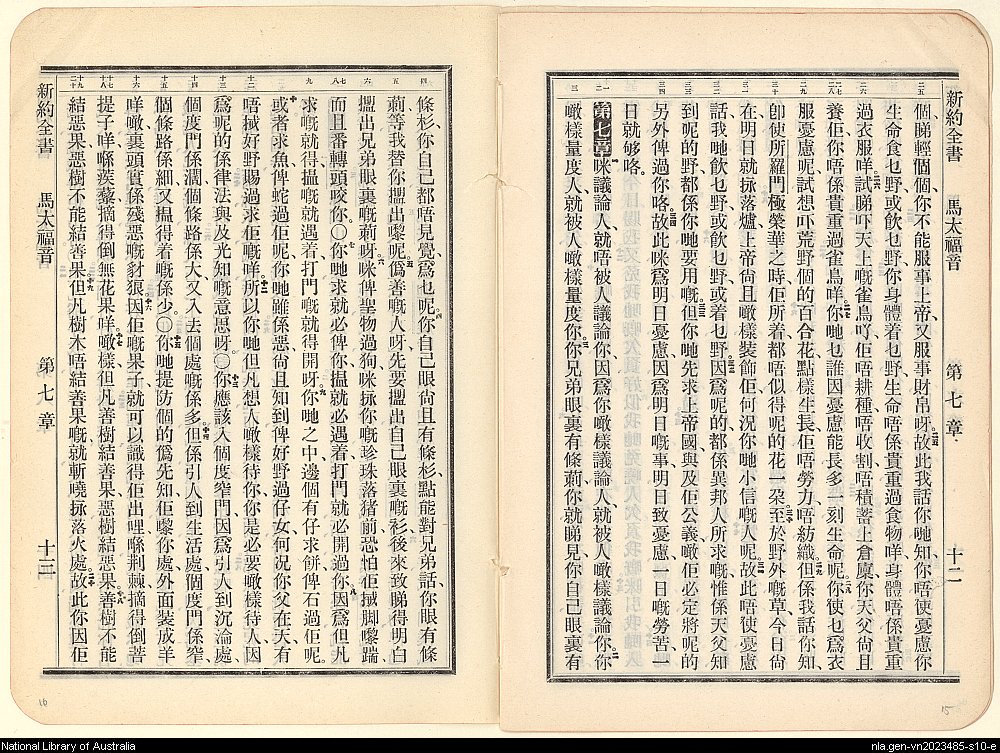 新約全書 馬太福音 第七章 十二
個、睇輕個個、你不能服事上帝、又服事財帛呀。故此我話你哋知、你唔使憂慮你
生命食乜野、或飲乜野、你身體着乜野、生命唔係貴重過食物咩、身體唔係貴重
過衣服咩。試睇吓天上嘅雀鳥吖、佢唔耕種、唔收割、唔積蓄上倉廩、你天父尙且
養佢、你唔係貴重過雀鳥咩。你哋乜誰因憂慮能長多一刻生命呢。你使乜爲衣
服憂慮呢、試想吓荒野個的百合花點樣生長、佢唔勞力、唔紡織。但係我話你知、
卽使所羅門極榮華之時、佢所着都唔似得呢的花一朶。至於野外嘅草、今日尙
在、明日就掷落爐、上帝尙且噉樣裝飾佢、何況你哋小信嘅人呢。故此唔使憂慮
話、我哋飲乜野、或飲乜野、或着乜野。因爲呢的都係異邦人所求嘅、惟係天父知
到呢的野都係你哋要用嘅。但你哋先求上帝國、與及佢公義、噉佢必定將呢的
另外俾過你咯。故此咪爲明日憂慮、因爲明日嘅事、明日致憂慮、一日嘅勞苦、一
日就够咯。
第七章 咪議論人、就唔被人議論你。因爲你噉樣議論人、就被人噉樣議論你、你
噉樣量度人、就被人噉樣量度你。你兄弟眼裏有條莿、你就睇見、你自己眼裏有
條杉、你自己都唔見覺、爲乜呢。你自己眼尙且有條杉、點能對兄弟話、你眼有條
莿、等我替你搵出嚟呢。僞善嘅人呀、先要搵出自己眼裏嘅杉、後來致睇得明白
搵出兄弟眼裏嘅莿呀。咪俾聖物過狗、咪掷你嘅珍珠落猪前、恐怕佢搣脚嚟踹、
而且番轉頭咬你。〇你哋求就必俾你、搵就必遇着、打門就必開過你。因爲但凡
求嘅就得、搵嘅就遇着、打門嘅就得開呀。你哋之中邊個有仔求餅、俾石過佢呢。
或者求魚、俾蛇過佢呢。你哋雖係惡、尙且知到俾好野過仔女、何況你父在天、有
唔搣好野賜過求佢嘅咩。所以你哋但凡想人噉樣待你、你是必要噉樣待人、因
爲呢的係律法與及先知嘅意思呀。〇你應該入個度窄門、因爲引人到沉淪處、
個度門係濶、個條路係大、又入去個處嘅係多。但係引人到生活處個度門係窄、
個條路係細、又搵得着嘅係少。〇你哋提防個的僞先知、佢嚟你處、外面裝成羊
咩噉、裏頭實係殘惡嘅豺狼。因佢嘅果子就可以識得佢出哩、喺荆棘摘得倒菩
提子咩、喺蒺藜摘得倒無花果咩。噉樣但凡善樹結善果、惡樹結惡果。善樹不能
結惡果、惡樹不能結善果。但凡樹木唔結善果嘅、就斬曉掷落火處。故此你因佢
新約全書 馬太福音 第七章 十三
National Library of Australia
nla.gen-vn2023485-s10-e